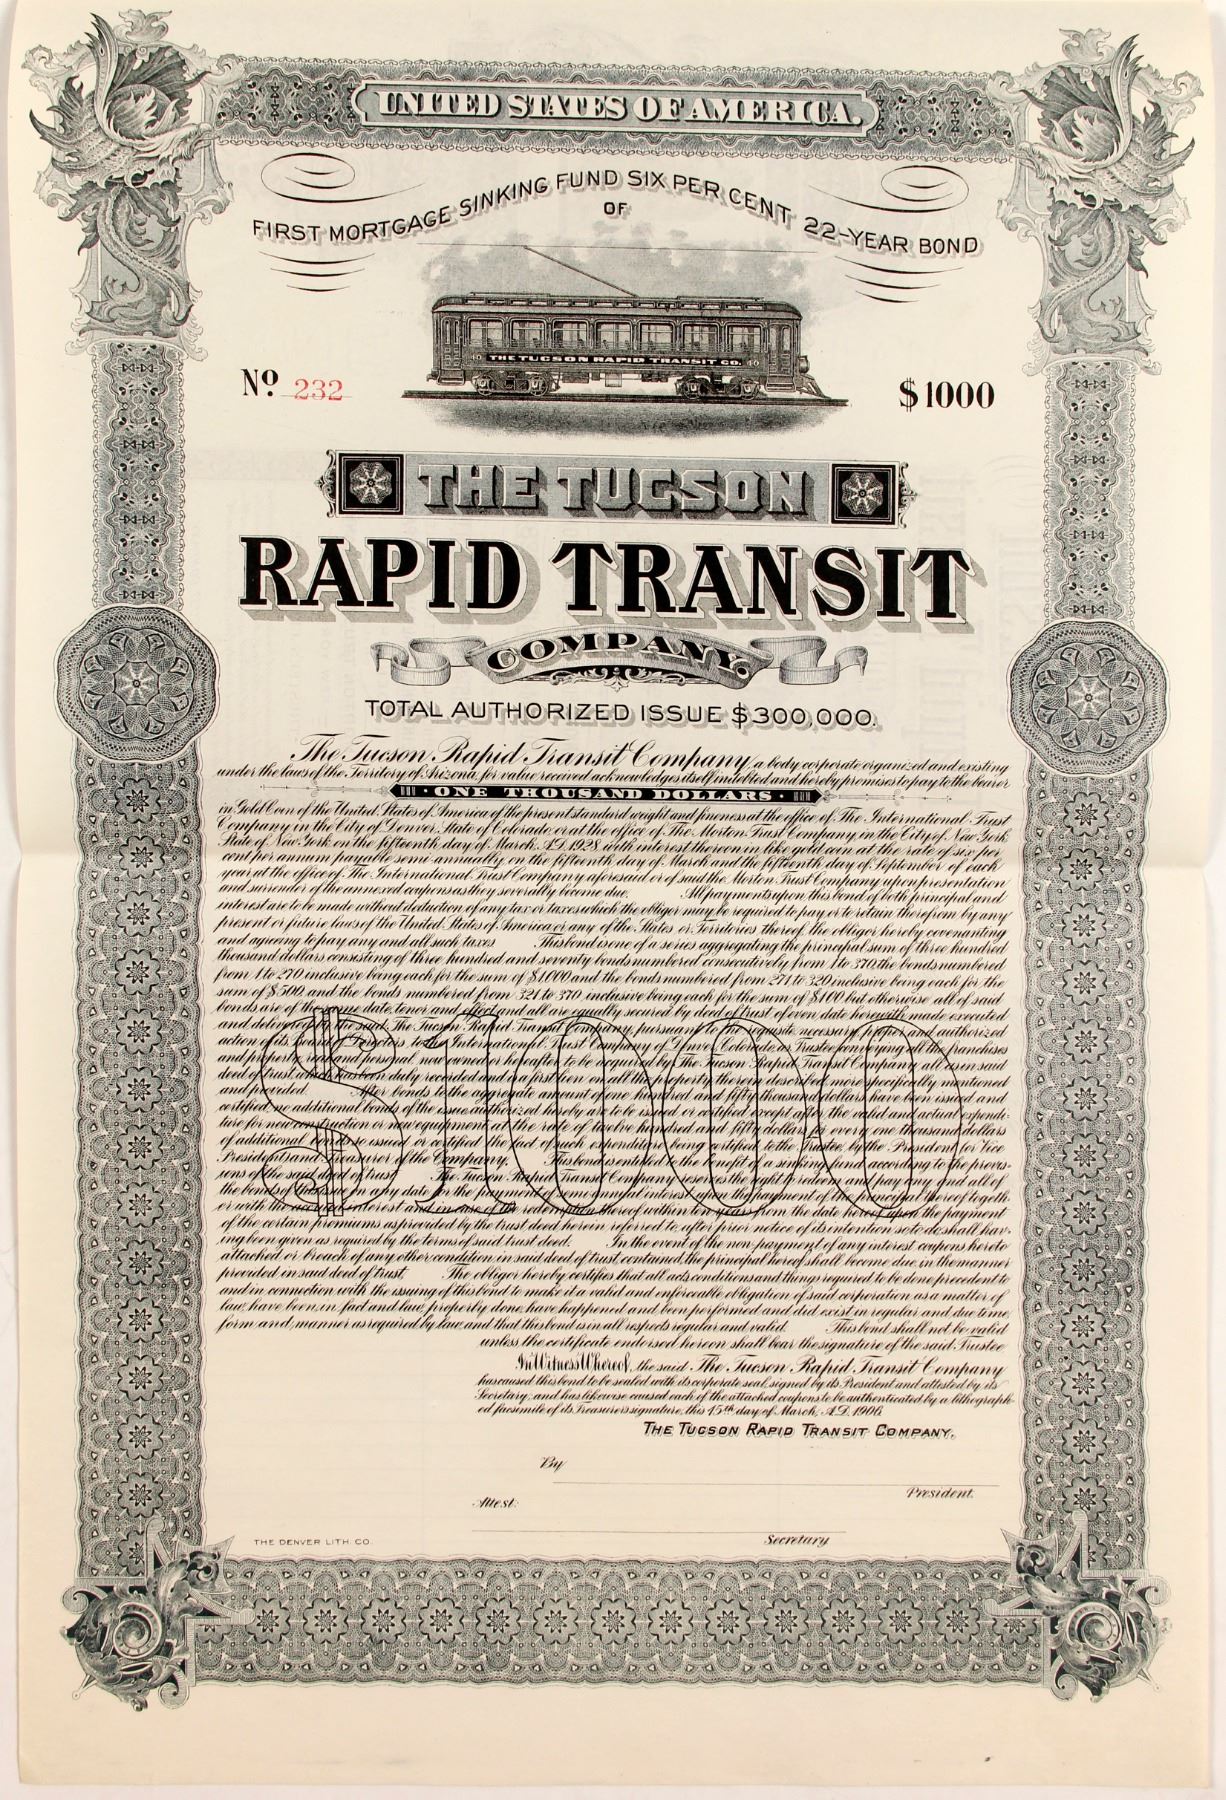 UNITED STATES OF AMERICA.
FIRST MORTGAGE SINKING FUND SIX PER CENT 22-YEAR BOND
OF
THE TUCSON RAPID TRANSIT CO.
No. 232
$1000
THE TUCSON
RAPID TRANSIT
COMPANY.
TOTAL AUTHORIZED ISSUE $300,000.
The Tucson Rapid Transit Company, a body corporate organized and existing
under the laws of the Territory of Arizona, for value received acknowledges itself indebted and hereby promises to pay to the bearer
ONE THOUSAND DOLLARS
in Gold Coin of the United States of America of the present standard weight and fineness at the office of The International Trust
Company in the City of Denver, State of Colorado or at the office of The Morton Trust Company in the City of New York
State of New York on the fifteenth day of March, A.D. 1928 with interest thereon in like gold coin at the rate of six per
cent per annum payable semi-annually on the fifteenth day of March and the fifteenth day of September of each
year at the office of The International Trust Company aforesaid or of said the Morton Trust Company upon presentation
and surrender of the annexed coupons as they severally become due. All payments upon this bond of both principal and
interest are to be made without deduction of any tax or taxes which the obligor may be required to pay or to retain therefrom by any
present or future laws of the United States of America or any of the States or Territories thereof, the obligor hereby covenanting
and agreeing to pay any and all such taxes This bond is one of a series aggregating the principal sum of three hundred
thousand dollars consisting of three hundred and seventy bonds numbered consecutively from 1 to 370, the bonds numbered
from 1 to 270 inclusive being each for the sum of $1,000 and the bonds numbered from 271 to 320 inclusive being each for the
sum of $500, and the bonds numbered from 321 to 370 inclusive being each for the sum of $100 but otherwise all of said
bonds are of the same date, tenor and effect and all are equally secured by deed of trust of even date herewith made executed
and delivered by the said The Tucson Rapid Transit Company, pursuant to the requisite necessary proper and authorized
action of its Board of Directors, to the International Trust Company of Denver, Colorado, as Trustee conveying all the franchises
and property, real and personal now owned or hereafter to be acquired by The Tucson Rapid Transit Company all as in said
deed of trust which has been duly recorded and is a first lien on all the property therein described, more specifically mentioned
and provided. After bonds to the aggregate amount of one hundred and fifty thousand dollars have been issued and
certified, no additional bonds of the issue authorized hereby are to be issued or certified except after the valid and actual expendi-
ture for new construction or new equipment at the rate of twelve hundred and fifty dollars for every one thousand dollars
of additional bonds so issued or certified the fact of such expenditure being certified to the Trustee, by the President (or Vice
President) and Treasurer of the Company. This bond is entitled to the benefit of a sinking fund according to the provis-
ions of the said deed of trust. The Tucson Rapid Transit Company reserves the right to redeem and pay any and all of
the bonds of this issue on any date for the payment of semi annual interest upon the payment of the principal thereof togeth-
er with the accrued interest and in case of the redemption thereof within ten years from the date hereof upon the payment
of the certain premiums as provided by the trust deed herein referred to, after prior notice of its intention so to do shall hav-
ing been given as required by the terms of said trust deed. In the event of the non-payment of any interest coupons hereto
attached or breach of any other condition in said deed of trust contained, the principal hereof shall become due, in the manner
provided in said deed of trust. The obligor hereby certifies that all acts conditions and things required to be done precedent to
and in connection with the issuing of this bond to make it a valid and inforcable obligation of said corporation as a matter of
law, have been, in fact and law, properly done, have happened and been performed and did exist in regular and due time,
form and manner as required by law, and that this bond is in all respects regular and valid. This bond shall not be valid
unless the certificate endorsed hereon shall bear the signature of the said Trustee
$1000
In Witness Whereof, the said The Tucson Rapid Transit Company
has caused this bond to be sealed with its corporate seal, signed by its President and attested by its
Secretary: and has likewise caused each of the attached coupons to be authenticated by a lithograph-
ed facsimile of its Treasurer's signature, this 15th day of March, A.D. 1906.
THE TUCSON RAPID TRANSIT COMPANY.
By
President.
Attest:
Secretary
THE DENVER LITH. CO.